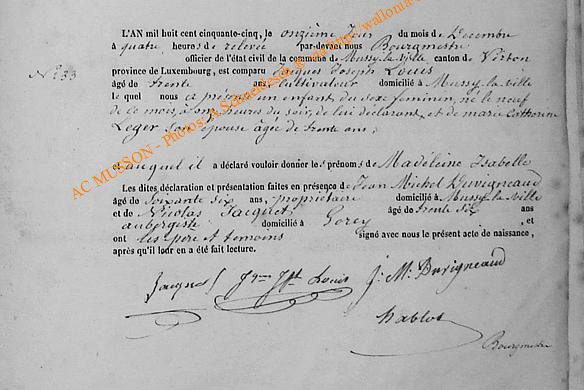 L'AN mil huit cent cinquante-cinq, le onzième Jour du mois de Decembre
à quatre heures de relevée par-devant nous Bourgmestre
officier de l'état civil de la commune de Mussy-la-ville canton de Virton
No 33
province de Luxembourg, est comparu Jacques Joseph Louis
âgé de trente ans, cultivateur domicilié à Mussy-la-ville
le quel nous a présenté un enfant du sexe feminin, né le neuf
de ce mois, à onze heures du soir, de lui déclarant, et de marie Catherine
Leger son épouse agée de trente ans,
et auquel il a déclaré vouloir donner les prénoms de Madéleine Isabelle
Les dites déclaration et présentation faites en présence de Jean Michel Duvigneaud
âgé de soixante six ans, propriétaire domicilié à Mussy-la-ville
et de Nicolas Jacquet âgé de trente six ans
aubergiste domicilié à Gorcy, et
ont les père et temoins signé avec nous le présent acte de naissance,
après qu'il leur en a été fait lecture.
Jacquet Jques Jph Louis J. M. Duvigneaud
Bourgmestre
AC MUSSON - Photos: A.Schneiders